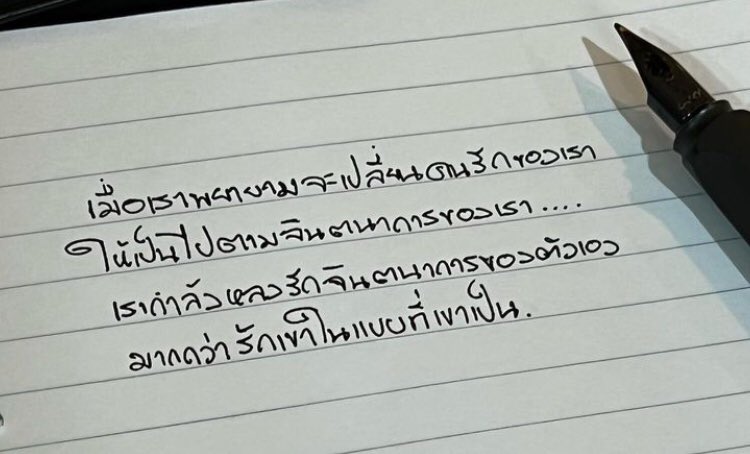 เมื่อเราพยายามจะเปลี่ยนคนรักของเรา
ให้เป็นไปตามจินตนาการของเรา....
เรากำลังหลงรักจินตนาการของตัวเอง
มากกว่ารักเขาในแบบที่เขาเป็น.